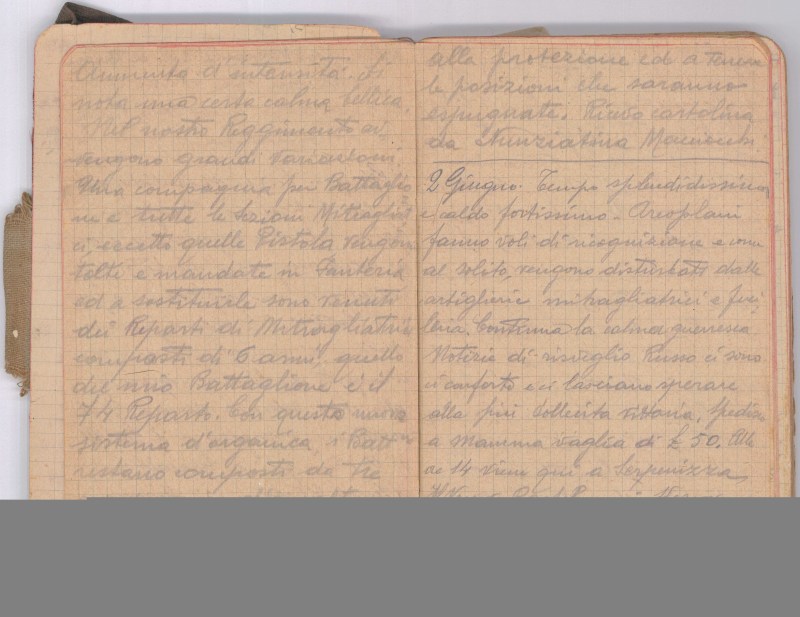 Aumenta d'intensità. Si
nota una certa calma bellica.
Nel nostro Reggimento av
vengono grandi variazioni.
Una compagnia per Battaglio
ne e tutte le sezioni Mitragliat
ci eccetto quelle Pistola vengon
tolti e mandate in Fanteria
ed a sostituirle sono venuti
dei Reparti di Mitragliatrici
composti di 6 armi, quello
del mio Battaglione è il
74 Reparto. Con questo nuovo
sistema d'organica, i Batt
restano composti da tre
alla protezione ed a tenere
le posizioni che saranno
espugnate. Ricevo cartolina
da Nunziatina
2 Giugno. Tempo splendidissimo
e caldo fortissimo. Areoplani
fanno voli di ricognizione e come
al solito, vengono disturbati dalle
artiglierie mitragliatrici e fuci
leria. Continua la calma guerresca.
Notizie di risveglio Russo ci sono
di conforto e ci lasciano sperare
alla più sollecita vittoria. Spedisco
a Mamma vaglia di £ 50. Alle
ore 14 viene qui a Serpenizza